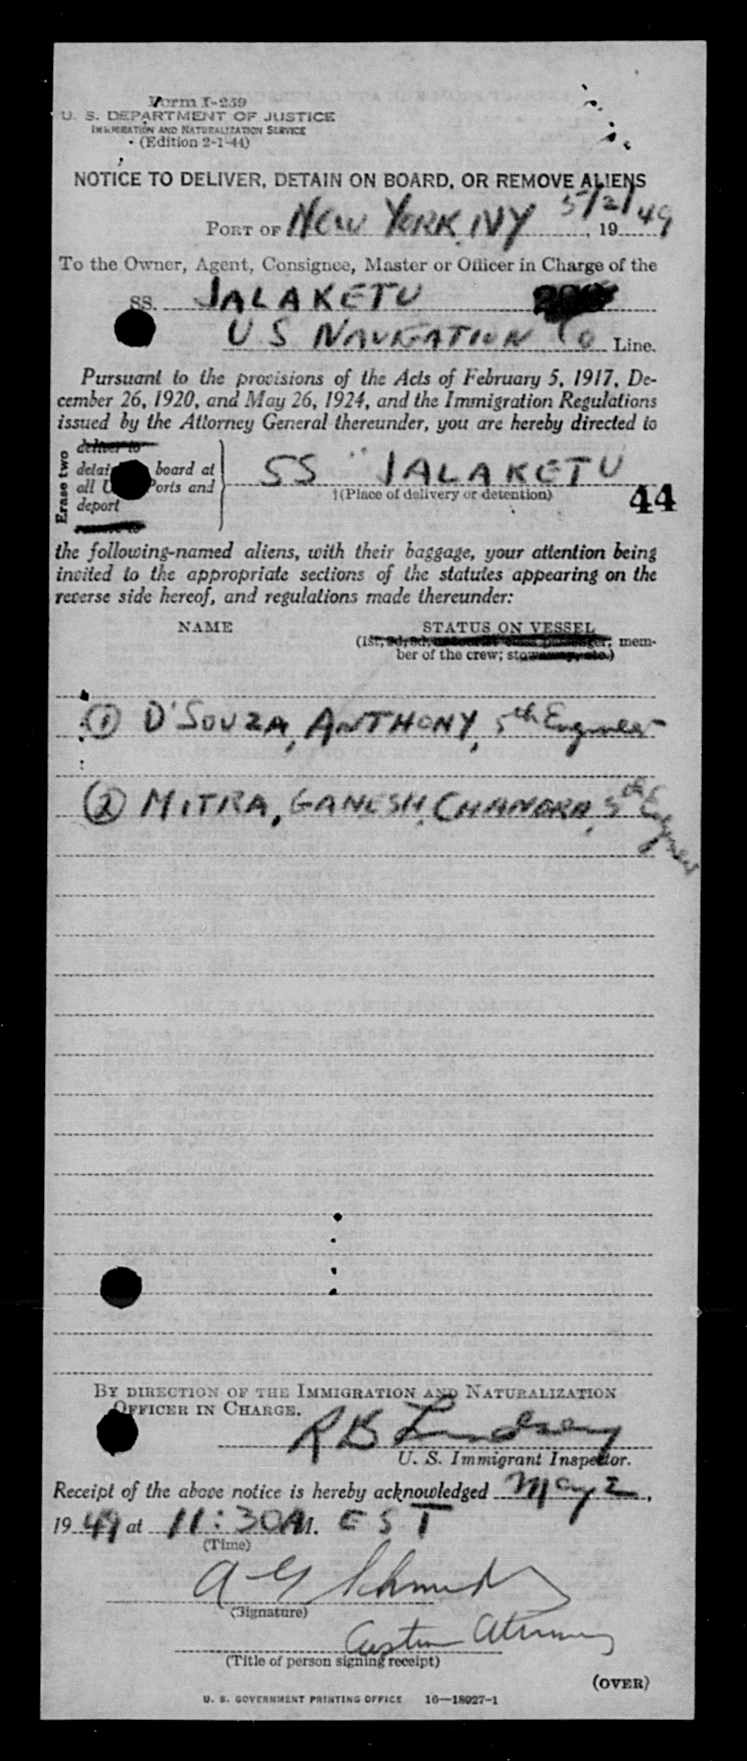 Form I-259
U. S. DEPARTMENT OF JUSTICE
IMMIGRATION AND NATURALIZATION SERVICE
(Edition 2-1-44)
NOTICE TO DELIVER, DETAIN ON BOARD, OR REMOVE ALIENS
PORT OF NEW YORK, NY 5/2/49, 1949
To the Owner, Agent, Consignee, Master or Officer in Charge of the
SS. JALAKETU
U S NAVIGATION Co Line.
Pursuant to the provisions of the Acts of February 5, 1917, De-
cember 26, 1920, and May 26, 1924, and the Immigration Regulations
issued by the Attorney General thereunder, you are hereby directed to
Erase two
deliver to
detain board at
all U Ports and
deport
SS "JALAKETU
†(Place of delivery or detention)
44
the following-named aliens, with their baggage, your attention being
invited to the appropriate sections of the statutes appearing on the
reverse side hereof, and regulations made thereunder:
NAME STATUS ON VESSEL
(1st, mem-
ber of the crew;
(1) D'SOUZA, ANTHONY, 5th Engineer
(2) MITRA, GANESH, CHANDRA, 5th Engineer
BY DIRECTION OF THE IMMIGRATION AND NATURALIZATION
OFFICER IN CHARGE.
R B Lindsey
U. S. Immigrant Inspector.
Receipt of the above notice is hereby acknowledged May 2,
1949 at 11:30AM. EST
(Time)
A G Schmidt
(Signature)
(Title of person signing receipt)
(OVER)
U. S. GOVERNMENT PRINTING OFFICE 16—18927-1